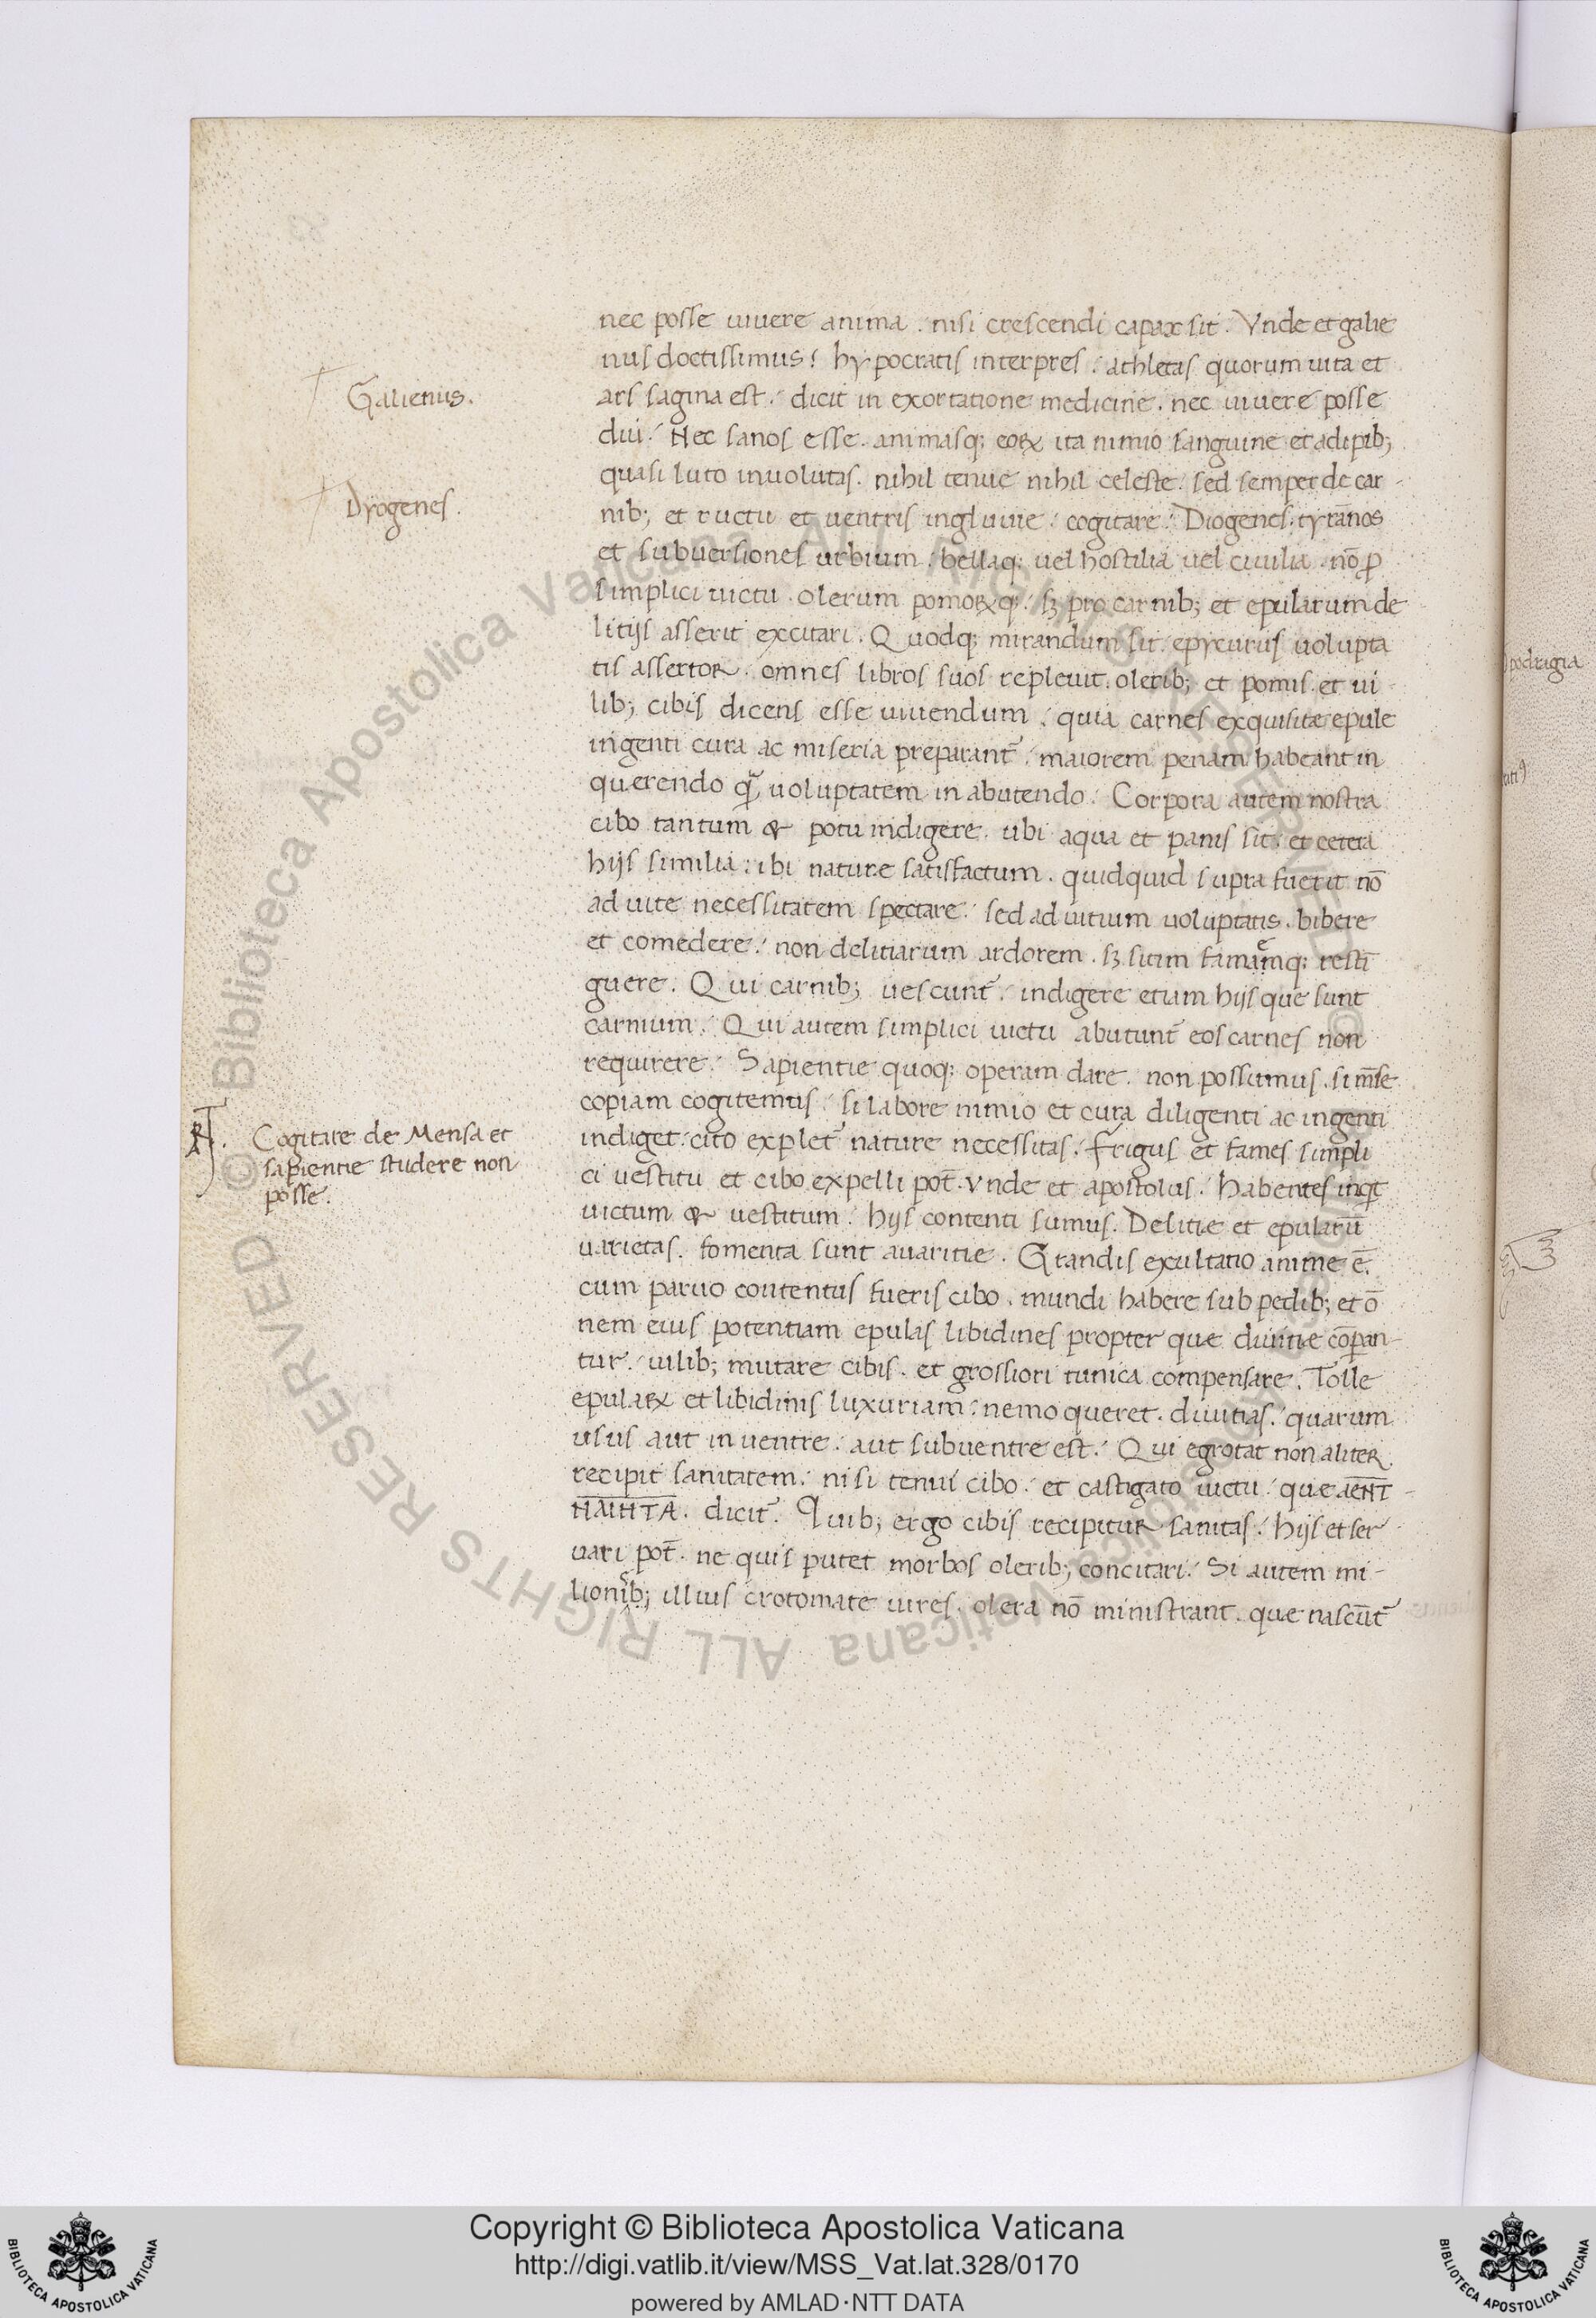 nec posse uiuere anima . nisi crescendi capax sit . Vnde et galie
nus doctissimus ! hypocratis interpres . athletas quorum uita et
Galienus.
ars sagina est . dicit in exortatione medicine . nec uiuere posse
diu . Nec sanos esse . animasq; eoꝝ ita nimio sanguine et adipib;
quasi luto inuolutas . nihil tenue nihil celeste . sed semper de car-
Dyogenes.
nib; et ructu et uentris ingluuie . cogitare . Diogenes . tyrãnos
et subuersiones urbium . bellaq; uel hostilia uel ciuilia . nõ ꝓ
simplici uictu . olerum pomoꝝq; . sꝫ pro carnib; et epularum de
litijs asserit excitari . Quodq; mirandum sit . epycurus uolupta
tis assertor . omnes libros suos repleuit . olerib; et pomis . et ui-
lib; cibis dicens esse uiuendum . quia carnes exquisitæ epule
ingenti cura ac miseria preparant᷑ . maiorem penam habeant in
querendo qᷓ uoluptatem in abutendo . Corpora autem nostra
cibo tantum & potu indigere . ubi aqua et panis sit . et cetera
hijs similia . ibi nature satisfactum . quidquid supra fuerit nõ
ad uite necessitatem spectare . sed ad uitium uoluptatis . bibere
et comedere . non delitiarum ardorem . sꝫ sitim famamq; resti̅
e
guere . Qui carnib; uescunt᷑ . indigere etiam hijs que sunt
carnium . Qui autem simplici uictu abutunt᷑ eos carnes non
requirere . Sapientie quoq; operam dare . non possumus . si m̅se
copiam cogitemus . si labore nimio et cura diligenti ac ingenti
Cogitare de Mensa et
sapientie studere non
posse.
indiget . cito explet᷑ nature necessitas . Frigus et fames simpli
ci uestitu et cibo expelli pot̅ . vnde et apostolus . Habentes inqt̅
uictum & uestitum . hijs contenti sumus . Delitie et epularu̅
uarietas . fomenta sunt auaritie . Grandis exultatio anime e̅ .
cum paruo contentus fueris cibo . mundi habere sub pedib; et o̅
nem eius potentiam epulas libidines propter que diuitie co̅pan-
tur . uilib; mutare cibis . et grossiori tunica compensare . Tolle
epulaꝝ et libidinis luxuriam . nemo queret . diuitias . quarum
usus aut in uentre . aut sub uentre est . Qui egrotat non aliter
recipit sanitatem . nisi tenui cibo . et castigato uictu . que
dicit᷑ . Quib; ergo cibis recipitur sanitas . hijs et ser-
uari pot̅ . ne quis putet morbos olerib; concitari . Si autem mi-
lionib; illius crotomate uires . olera nõ ministrant . que nascu̅t᷑
s
podragia
© Biblioteca Apostolica Vaticana ALL RIGHTS RESERVED
© Biblioteca Apostolica Vaticana ALL RIGHTS RESERVED
Copyright © Biblioteca Apostolica Vaticana
http://digi.vatlib.it/view/MSS_Vat.lat.328/0170
powered by AMLAD·NTT DATA
BIBLIOTECA APOSTOLICA VATICANA
BIBLIOTECA APOSTOLICA VATICANA